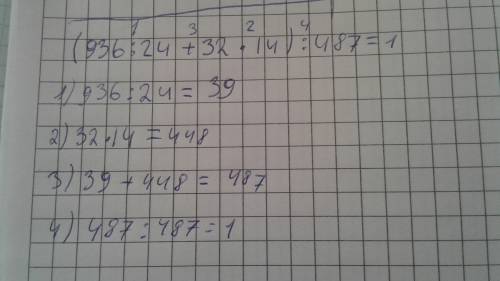 1 3 2 4
(936:24+32·14):487=1
1) 936:24=39
2) 32·14=448
3) 39+448=487
4) 487:487=1